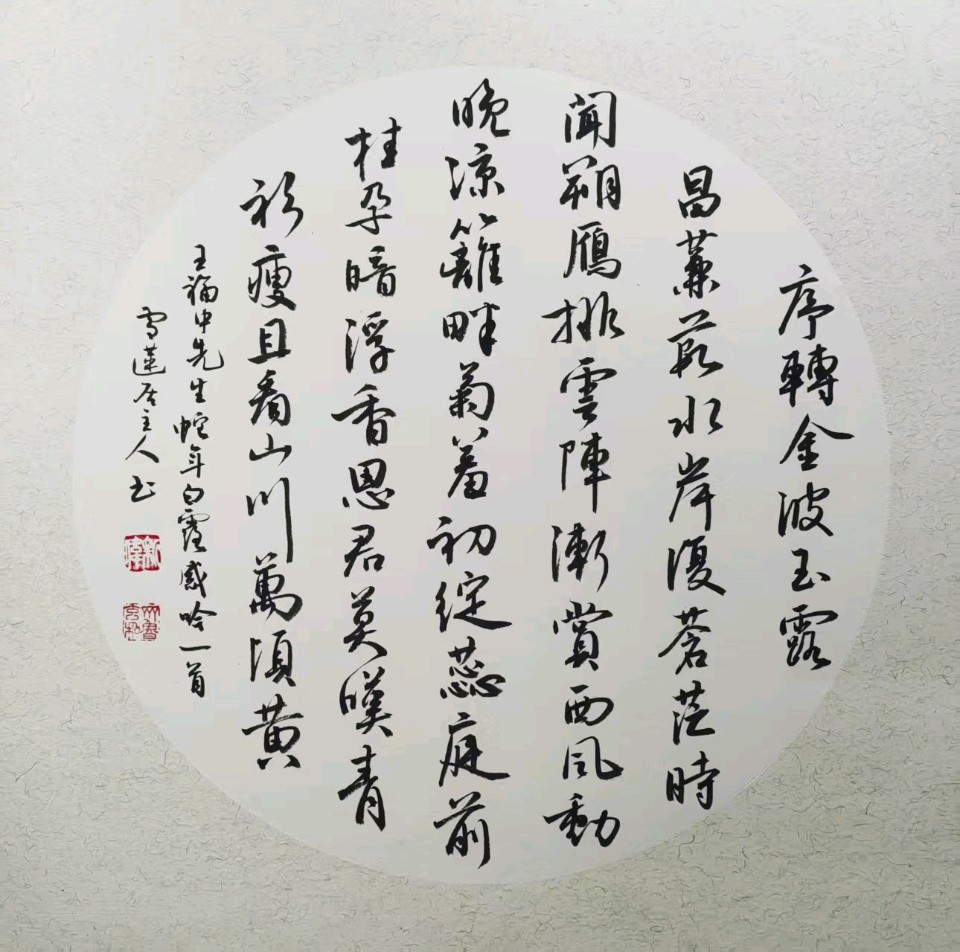 序轉金波玉露
昌蒹葭水岸復蒼茫時
聞朔鴈排雲陣漸賞西風動
晚涼籬畔菊羞初綻蕊庭前
桂孕暗浮香恩君莫嘆青
衫瘦且看山川萬頃黄
王福中先生蛇年白露感吟一首
雪蓮居主人书